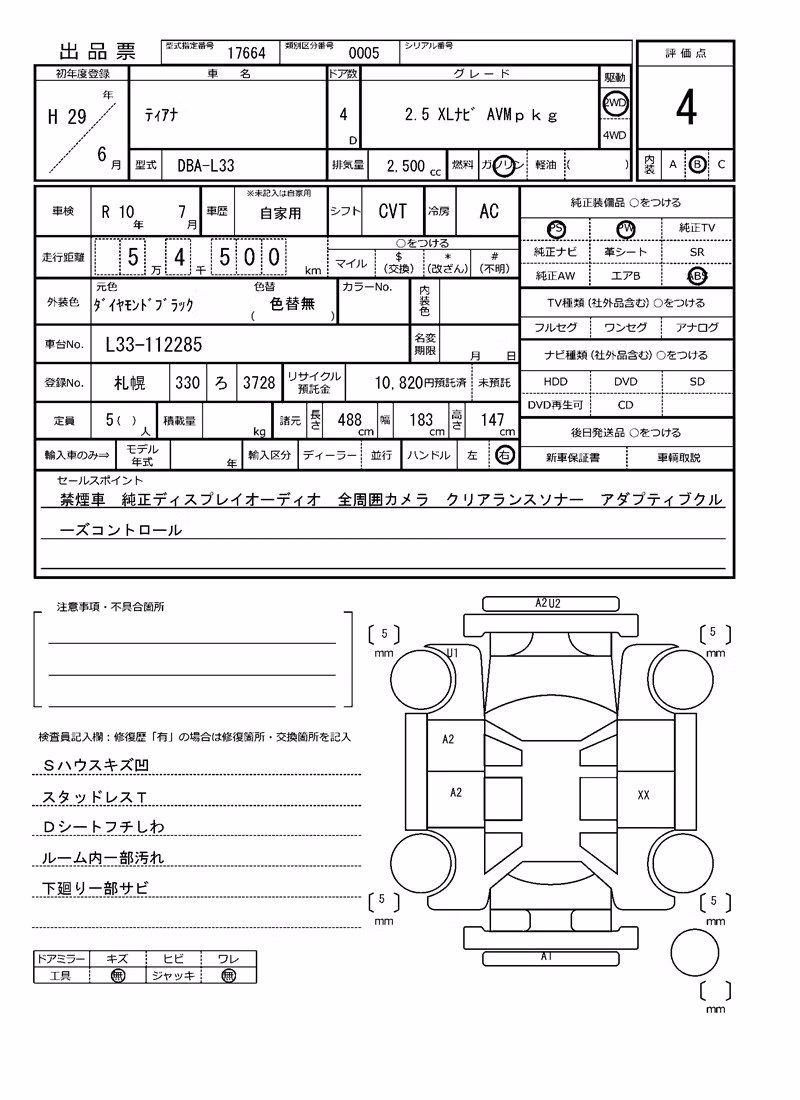 出品票 型式指定番号 17664 類別区分番号 0005 シリアル番号
評価点
4
内装 A B C
初年度登録 車名 ドア数 グレード 駆動
H 29 年 6 月 ティアナ 4 D 2.5 XLナビ AVMpkg 2WD 4WD
型式 DBA-L33 排気量 2,500 cc 燃料 ガソリン 軽油 ( )
車検 R 10 年 7 月 車歴 ※未記入は自家用 自家用 シフト CVT 冷房 AC
走行距離 5 万 4 千 5 0 0 km ○をつける
マイル $(交換) *(改ざん) #(不明)
外装色 元色 ダイヤモンドブラック 色替 ( 色替無 ) カラーNo. 内装色
車台No. L33-112285 名変期限 月 日
登録No. 札幌 330 ろ 3728 リサイクル預託金 10,820円預託済 未預託
定員 5( ) 人 積載量 kg 諸元 長さ 488 cm 幅 183 cm 高さ 147 cm
輸入車のみ⇒ モデル年式 年 輸入区分 ディーラー 並行 ハンドル 左 右
純正装備品 ○をつける
PS PW 純正TV
純正ナビ 革シート SR
純正AW エアB ABS
TV種類(社外品含む)○をつける
フルセグ ワンセグ アナログ
ナビ種類(社外品含む)○をつける
HDD DVD SD
DVD再生可 CD
後日発送品 ○をつける
新車保証書 車輌取説
セールスポイント
禁煙車 純正ディスプレイオーディオ 全周囲カメラ クリアランスソナー アダプティブクル
ーズコントロール
注意事項・不具合箇所
検査員記入欄：修復歴「有」の場合は修復箇所・交換箇所を記入
Sハウスキズ凹
スタッドレスT
Dシートフチしわ
ルーム内一部汚れ
下廻り一部サビ
ドアミラー キズ ヒビ ワレ
工具 無 ジャッキ 無
A2U2
5 mm
5 mm
U1
A2
A2
XX
5 mm
5 mm
A1
mm